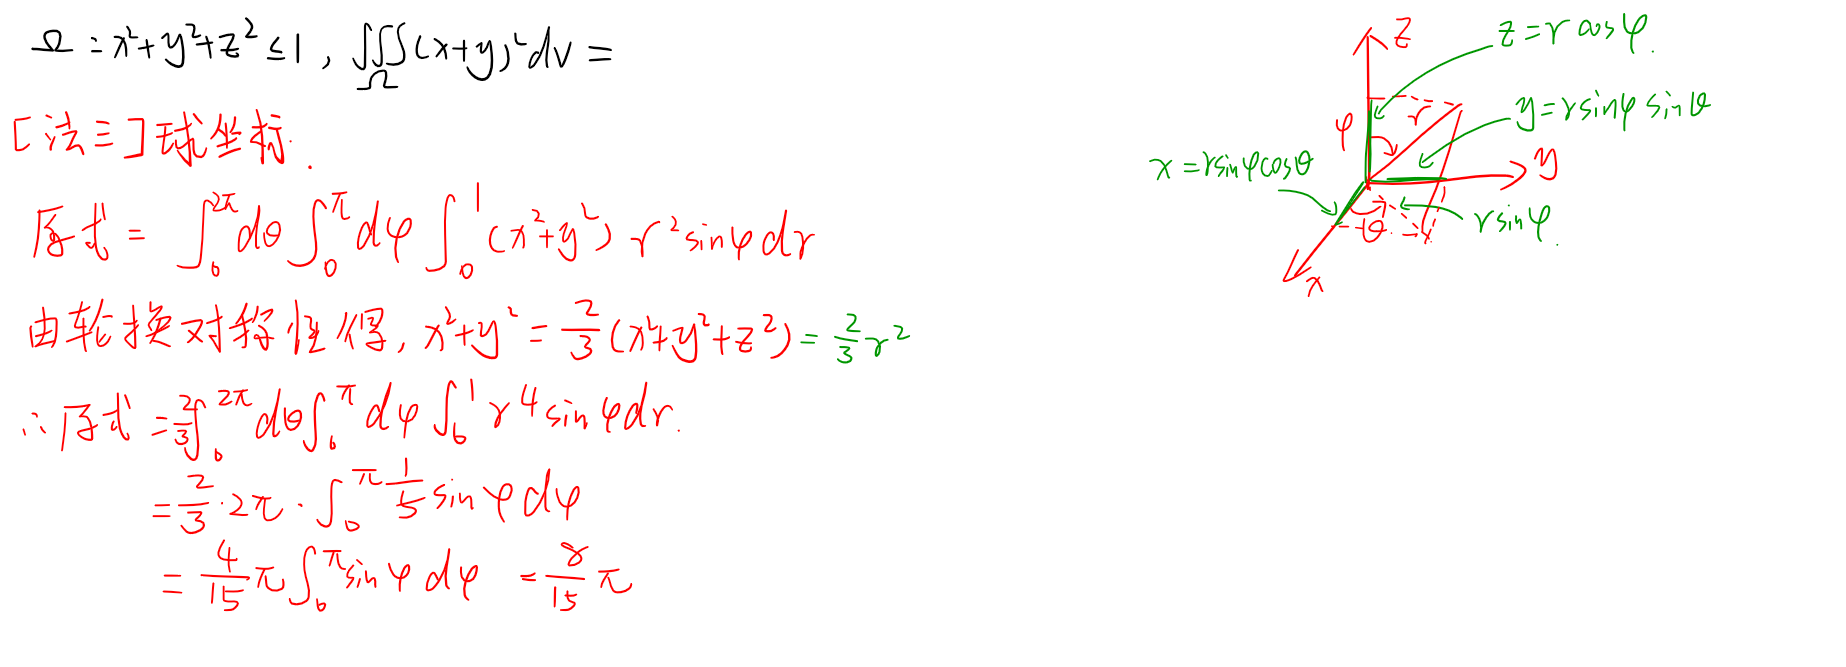 Ω：x²+y²+z²≤1, ∭_Ω (x+y)²dv =
[法三] 球坐标.
原式 = ∫₀^{2π}dθ∫₀^π dφ∫₀^1 (x²+y²) r²sinφdr
由轮换对称性得, x²+y² = 2/3 (x²+y²+z²) = 2/3 r²
∴原式 = 2/3∫₀^{2π}dθ∫₀^π dφ∫₀^1 r⁴sinφdr.
= 2/3·2π·∫₀^π 1/5 sinφdφ
= 4/15 π∫₀^π sinφdφ = 8/15 π
z
z=rcosφ.
φ
r
y=rsinφ sinθ
x=rsinφcosθ
y
θ
rsinφ.
x